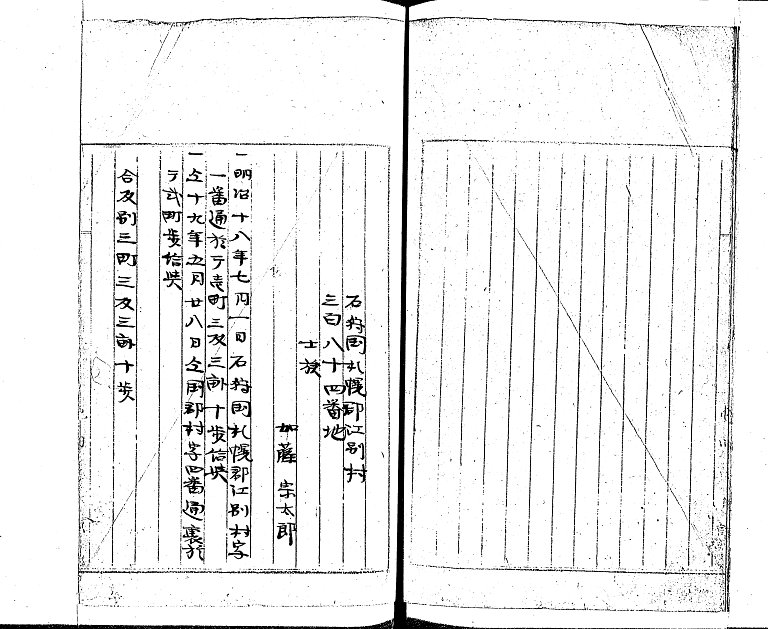 石狩国札幌郡江別村
三百八十四番地
士族
加藤宗太郎
一明治十八年七月一日石狩国札幌郡江別村字
一番通於テ壱町三反三畝十歩給与
一仝十九年五月廿八日仝国郡村字四番通裏於
テ弐町歩給与
合反別三町三反三畝十歩